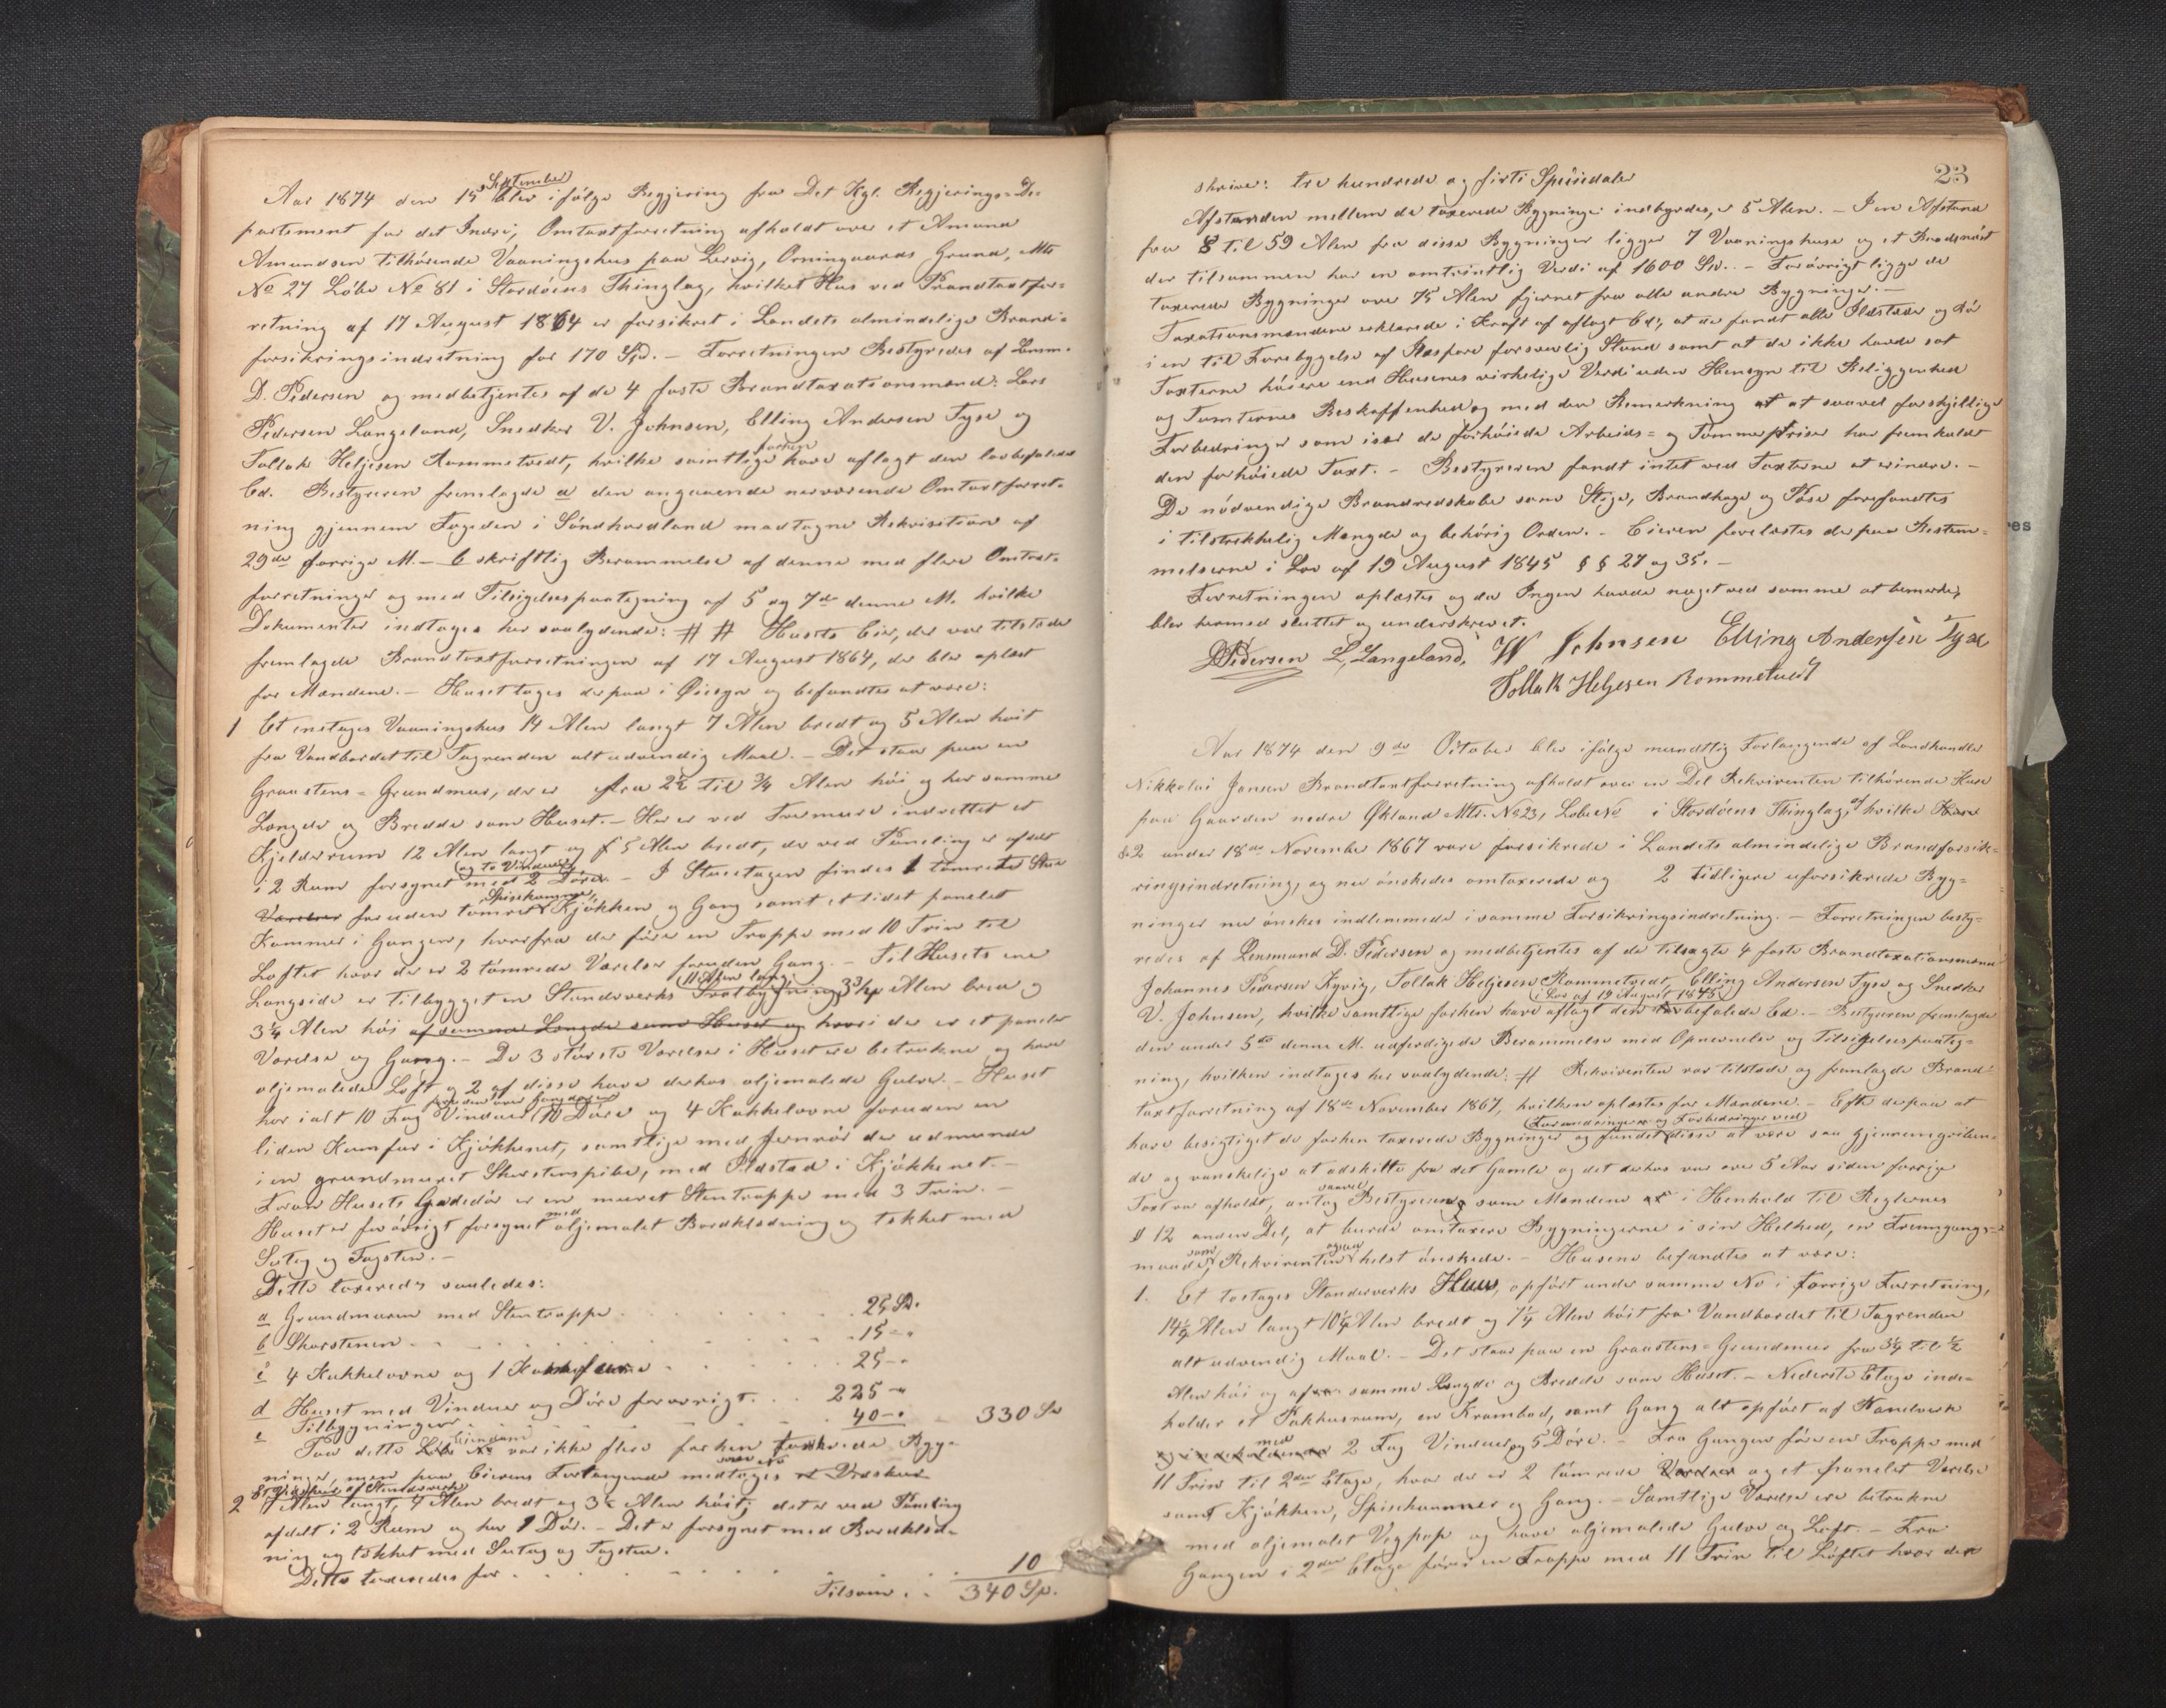 Aar 1874 den 15 September blev ifølge Begjæring fra Det Kgl. Regjerings-De-
partement for det Indre, Omtaxtforretning afholdt over et Amund
Amundsen tilhørende Vaaningshus paa Lervig, Orninggaards Grund, Mtr
No 27 Løbe No 81 i Stordøens Thinglag, hvilket Hus ved Brandtaxtfor-
retning af 17 August 1864 er forsikret i Landets almindelige Brand-
forsikringsindretning for 170 Spd. - Forretningen Bestyredes af Lensm.
D. Pedersen og medbetjentes af de 4 faste Brandtaxationsmænd: Lars
Pedersen Langeland, Snedker V. Johnsen, Elling Andersen Tyse og
Tollak Heljesen Rommetvedt, hvilke samtlige forhen have aflagt den lovbefalede
Ed. Bestyreren fremlagde a den angaaende nærværende Omtaxtforret-
ning gjennem Fogden i Søndhordland modtagne Rekvisition af
29de forrige M. - b skriftlig Berammelse af denne med flere Omtaxt-
forretninger og med Tilsigelsespaategning af 5 og 7de denne M. hvilke
Dokumenter indtages her saalydende: # # Husets Eier, der var tilstede
fremlagde Brandtaxtforretningen af 17 August 1864, der blev oplæst
for Mændene. - Huset toges derpaa i Øiesyn og befandtes at være:
1 Et enetages Vaaningshus 14 Alen langt 7 Alen bredt og 5 Alen høit
fra Vandbordet til Tagrenden alt udvendig Maal. - Det staar paa en
Graastens-Grundmur, der er fra 2½ til ¾ Alen høi og har samme
Længde og Bredde som Huset. - Her er ved Tvermure indrettet et
Kjelderrum 12 Alen langt og 5 Alen bredt, der ved Paneling er afdelt
i 2 Rum forsynet med 2 Døre og to Vinduer. - I Stueetagen findes 1 tømret Stue
Værelser foruden tømret Spisekammer Kjøkken og Gang samt et lidet panelet
Kammer i Gangen, hvorfra der fører en Trappe med 10 Trin til
Loftet hvor der er 2 tømrede Værelser foruden Gang. - Til Husets ene
Langside er tilbygget en Standverks Svalbygning 11 Alen lang, 3¾ Alen bred og
3¼ Alen høi af samme Længde som Huset og hvori der er et panelet
Værelse og Gang. - De 3 største Værelser i Huset ere betrukne og have
oljemalede Loft og 2 af disse have derhos oljemalede Gulve. - Huset
har i alt 10 Fag Vinduer foruden over Gangdøren 10 Døre og 4 Kakkelovne foruden en
liden Komfur i Kjøkkenet, samtlige med Jernrør der udmunde
i en grundmuret Skorstenspibe, med Ildsted i Kjøkkenet. -
Foran Husets Gadedør er en muret Stentrappe med 3 Trin. -
Huset er forøvrigt forsynet med oljemalet Bordklædning og tækket med
Sutag og Tagsten. -
Dette taxeredes saaledes:
a Grundmuren med Stentrappe . . . . 25 Sp.
b Skorstenen . . . . 15 - "
c 4 Kakkelovne og 1 Komfur . . . . 25 - "
d Huset med Vinduer og Døre forøvrigt . . 225 - "
e Tilbygninger . . . . 40 - " 330 Sp
Paa dette Løbe No Eiendom var ikke flere forhen taxerede Byg-
ninger, men paa Eierens Forlangende medtages som No et Vedskur
2 et Vedskur af Standverk 7 Alen langt, 4 Alen bredt og 3½ Alen høit; det er ved Paneling
afdelt i 2 Rum og har 1 Dør. - Det er forsynet med Bordklæd-
ning og tækket med Sutag og Tagsten.
Dette taxeredes for . . . . 10
Tilsam. . . 340 Sp.
23
skriver: tre hundrede og firti Speciedaler
Afstanden mellem de taxerede Bygninger indbyrdes, er 5 Alen. - I en Afstand
fra 8 til 59 Alen fra disse Bygninger ligger 7 Vaaningshuse og et Baadenøst
der tilsammen har en omtrintlig Verdi af 1600 Spd. - Forøvrigt ligge de
taxerede Bygninger over 75 Alen fjernet fra alle andre Bygninger. -
Taxationsmændene erklærede i Kraft af aflagt Ed, at de fandt alle Ildsteder og Rør
i en til Forebyggelse af Ildsfare forsvarlig Stand samt at de ikke havde sat
Taxterne høiere end Husenes virkelige Verdi uden Hensyn til Beliggenhed
og Tomternes Beskaffenhed og med den Bemerkning at saavel forskjellige
Forbedringer som især de forhøiede Arbeids- og Tømmerpriser har fremkaldt
den forhøiede Taxt. - Bestyreren fandt intet ved Taxterne at erindre. -
De nødvendige Brandredskaber som Stige, Brandhage og Pøse forefandtes
i tilstrekkelig Mængde og behørig Orden. - Eieren forelæstes derpaa Bestem-
melserne i Lov af 19 August 1845 § § 27 og 35. -
Forretningen oplæstes og da Ingen havde noget ved samme at bemerke,
blev hermed sluttet og underskrevet.
D Pedersen L, Langeland, W Johnsen Elling Andersen Tyse
Tollak Heljesen Rommetvedt
Aar 1874 den 9de October blev ifølge mundtlig Forlangende af Landhandler
Nikkolai Jansen Brandtaxtforretning afholdt over en Del Rekvirenten tilhørende Huse
paa Gaarden nedre Økland Mtr. No 23, Løbe No i Stordøens Thinglag, af hvilke Huse
de 2 under 18de November 1867 vare forsikrede i Landets almindelige Brandforsik-
ringsindretning, og nu ønskedes omtaxerede og 2 tidligere uforsikrede Byg-
ninger nu ønskes indlemmede i samme Forsikringsindretning. - Forretningen besty-
redes af Lensmand D. Pedersen og medbetjentes af de tilsagte 4 faste Brandtaxationsmænd
Johannes Pedersen Kyvig, Tollak Heljesen Rommetvedt, Elling Andersen Tyse og Snedker
V. Johnsen, hvilke samtlige forhen have aflagt den i Lov af 19 August 1845 befalede Ed. - Bestyreren fremlagde
den under 5te denne M. udferdigede Berammelse med Opnævnelse og Tilsigelsespaateg-
ning, hvilken indtages her saalydende: # Rekvirenten var tilstede og fremlagde Brand-
taxtforretning af 18de November 1867, hvilken oplæstes for Mændene. - Efter derpaa at
have besigtiget de forhen taxerede Bygninger og fundet Forandringer og Forbedringer ved disse at være saa gjennemgriben-
de og vanskelige at adskille fra det Gamle og det derhos var over 5 Aar siden forrige
Taxt var afholdt, antog saavel Bestyreren som Mændene i Henhold til Reglernes
§ 12 anden Del, at burde omtaxere Bygningerne i sin Helhed, en Fremgangs-
maade, som Rekvirenten ogsaa helst ønskede. - Husene befandtes at være:
1. Et toetages Standerverks Huus, opført under samme No i forrige Forretning,
14½ Alen langt 10¼ Alen bredt og 7¼ Alen høit fra Vandbordet til Tagrenden
alt udvendig Maal. - Det staar paa en Graastens-Grundmur fra 3¼ til ½
Alen høi og af samme Længde og Bredde som Huset. - Nederste Etage inde-
holder et Pakhusrum, en Krambod, samt Gang alt opført af Standverk
med 2 Fag Vinduer og 5 Døre. - Fra Gangen fører en Trappe med
11 Trin til 2den Etage, hvor der er 2 tømrede Værelser og et panelet Værelse
samt Kjøkken, Spisekammer og Gang. - Samtlige Værelser ere betrukne
med oljemalet Vegpap og have oljemalede Gulve og Loft. - Fra
Gangen i 2den Etage fører en Trappe med 11 Trin til Loftet hvor der